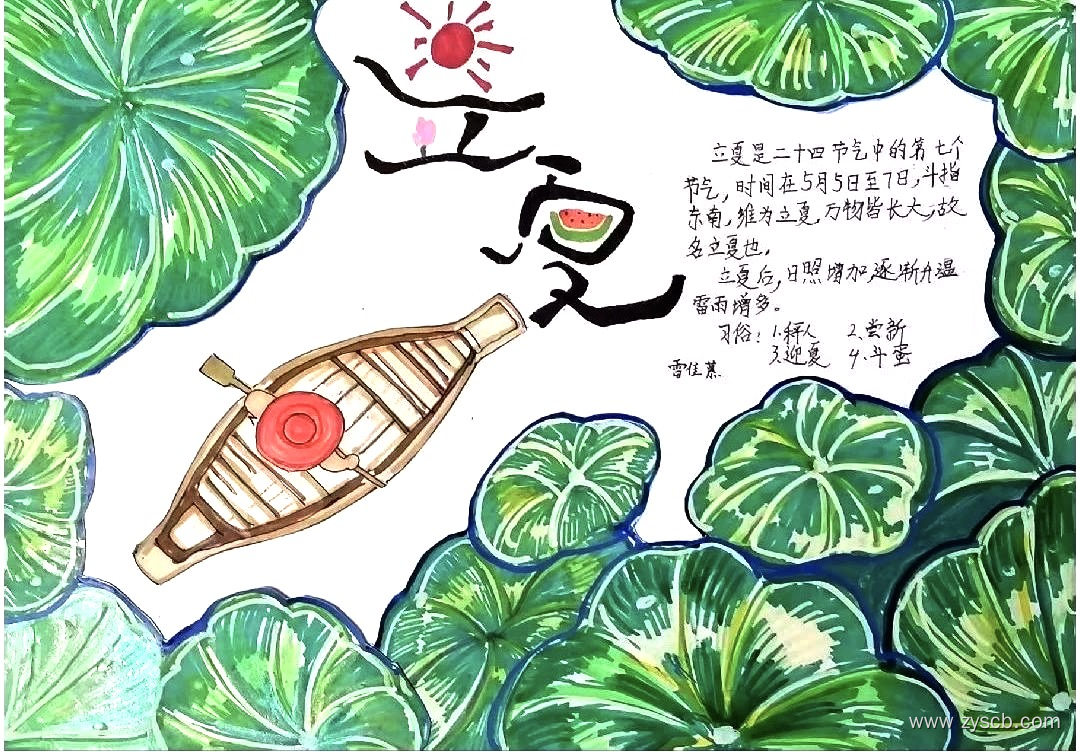 立夏
立夏是二十四节气中的第七个
节气，时间在5月5日至7日，斗指
东南，维为立夏，万物皆长大，故
名立夏也。
立夏后，日照增加，逐渐升温
雷雨增多。
习俗：1.秤人 2.尝新
3.迎夏 4.斗蛋
雷佳慕
www.zyscb.com